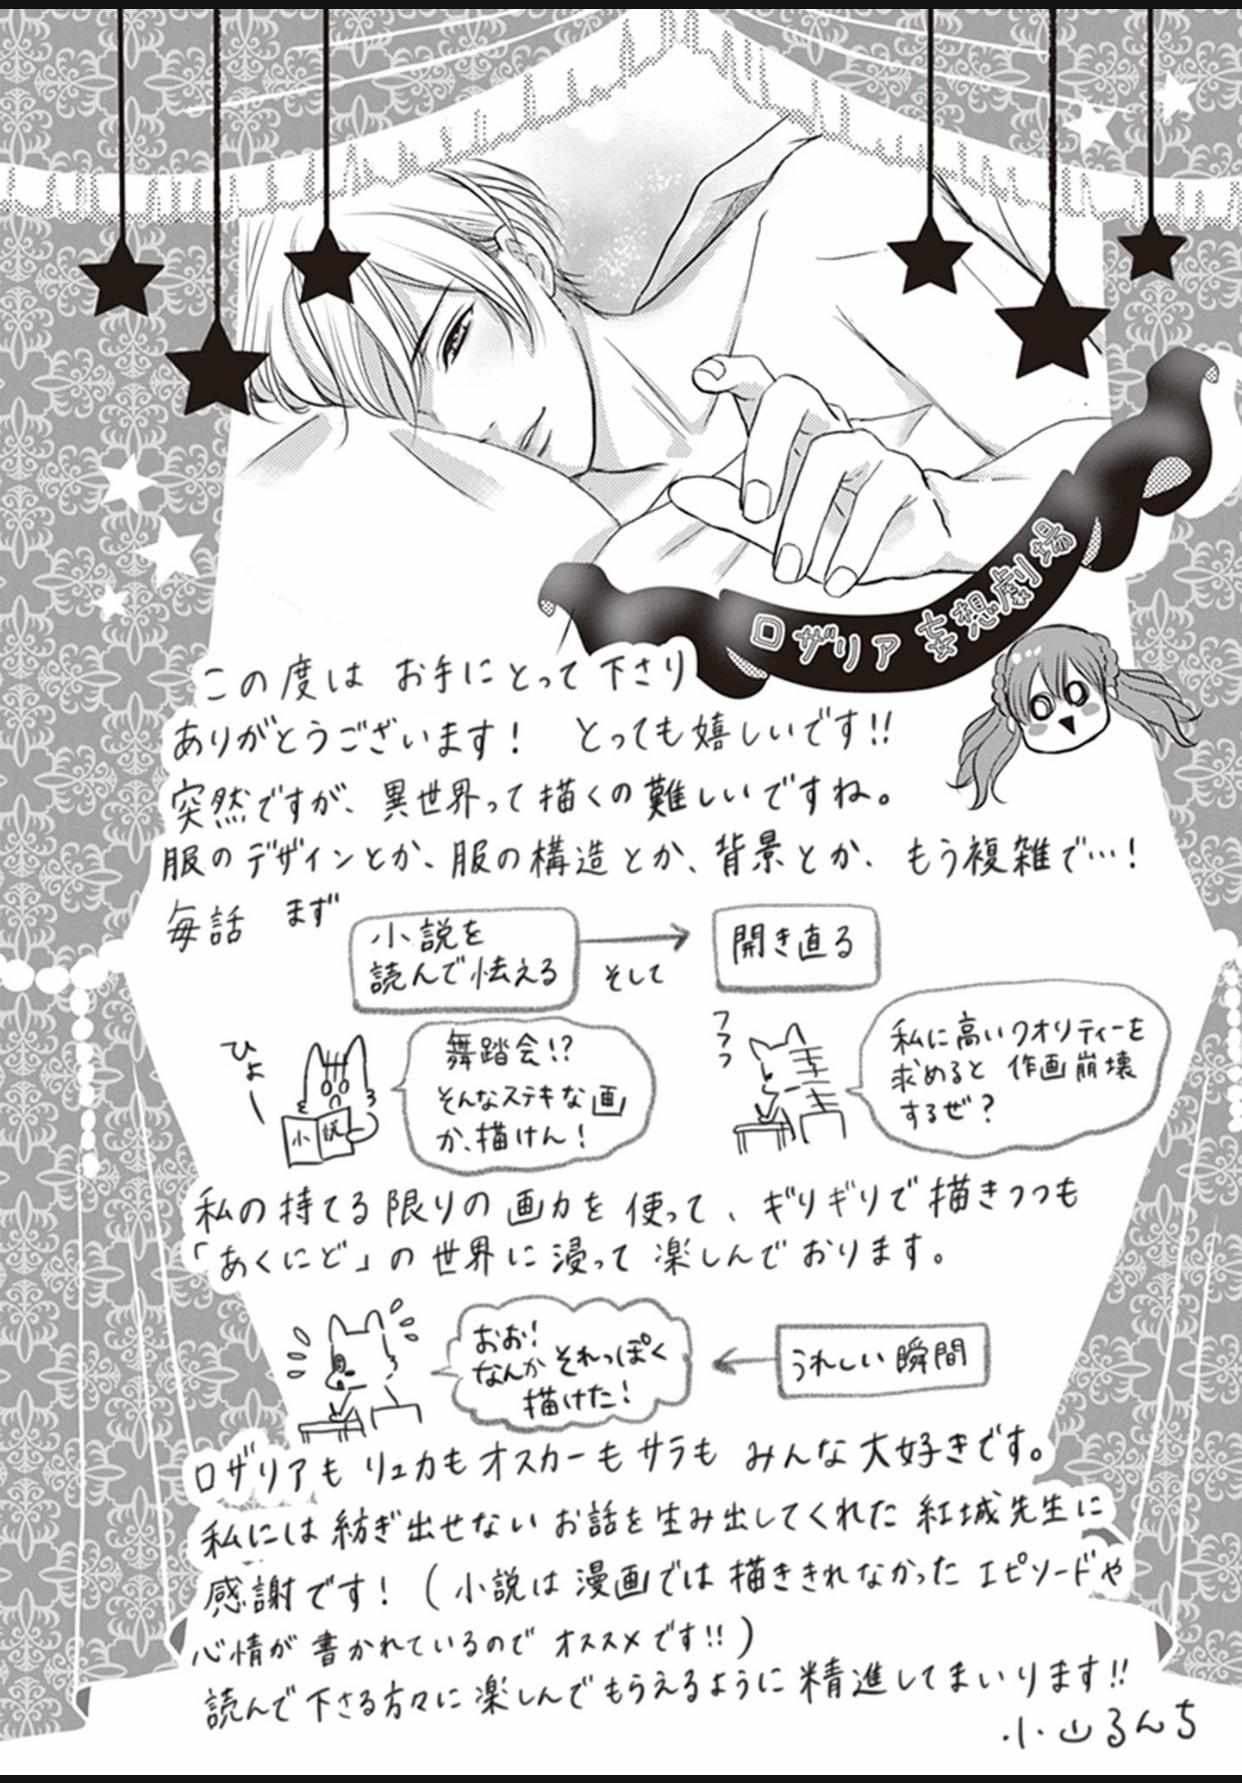 ロザリア 妄想劇場
この度は お手にとって下さり
ありがとうございます! とっても嬉しいです!!
突然ですが、異世界って描くの難しいですね。
服のデザインとか、服の構造とか、背景とか、もう複雑で…!
毎話 まず
小説を
読んで怯える
そして
開き直る
ひょー
小説
舞踏会!?
そんなステキな画
か、描けん!
フフフ
私に高いクオリティーを
求めると 作画崩壊
するぜ?
私の持てる限りの画力を使って、ギリギリで描きつつも
「あくにど」の世界に浸って楽しんでおります。
おお!
なんかそれっぽく
描けた!
うれしい瞬間
ロザリアもリュカもオスカーもサラも みんな大好きです。
私には紡ぎ出せないお話を生み出してくれた紅城先生に
感謝です!(小説は漫画では描ききれなかったエピソードや
心情が書かれているのでオススメです!!)
読んで下さる方々に楽しんでもらえるように精進してまいります!!
小山るんち